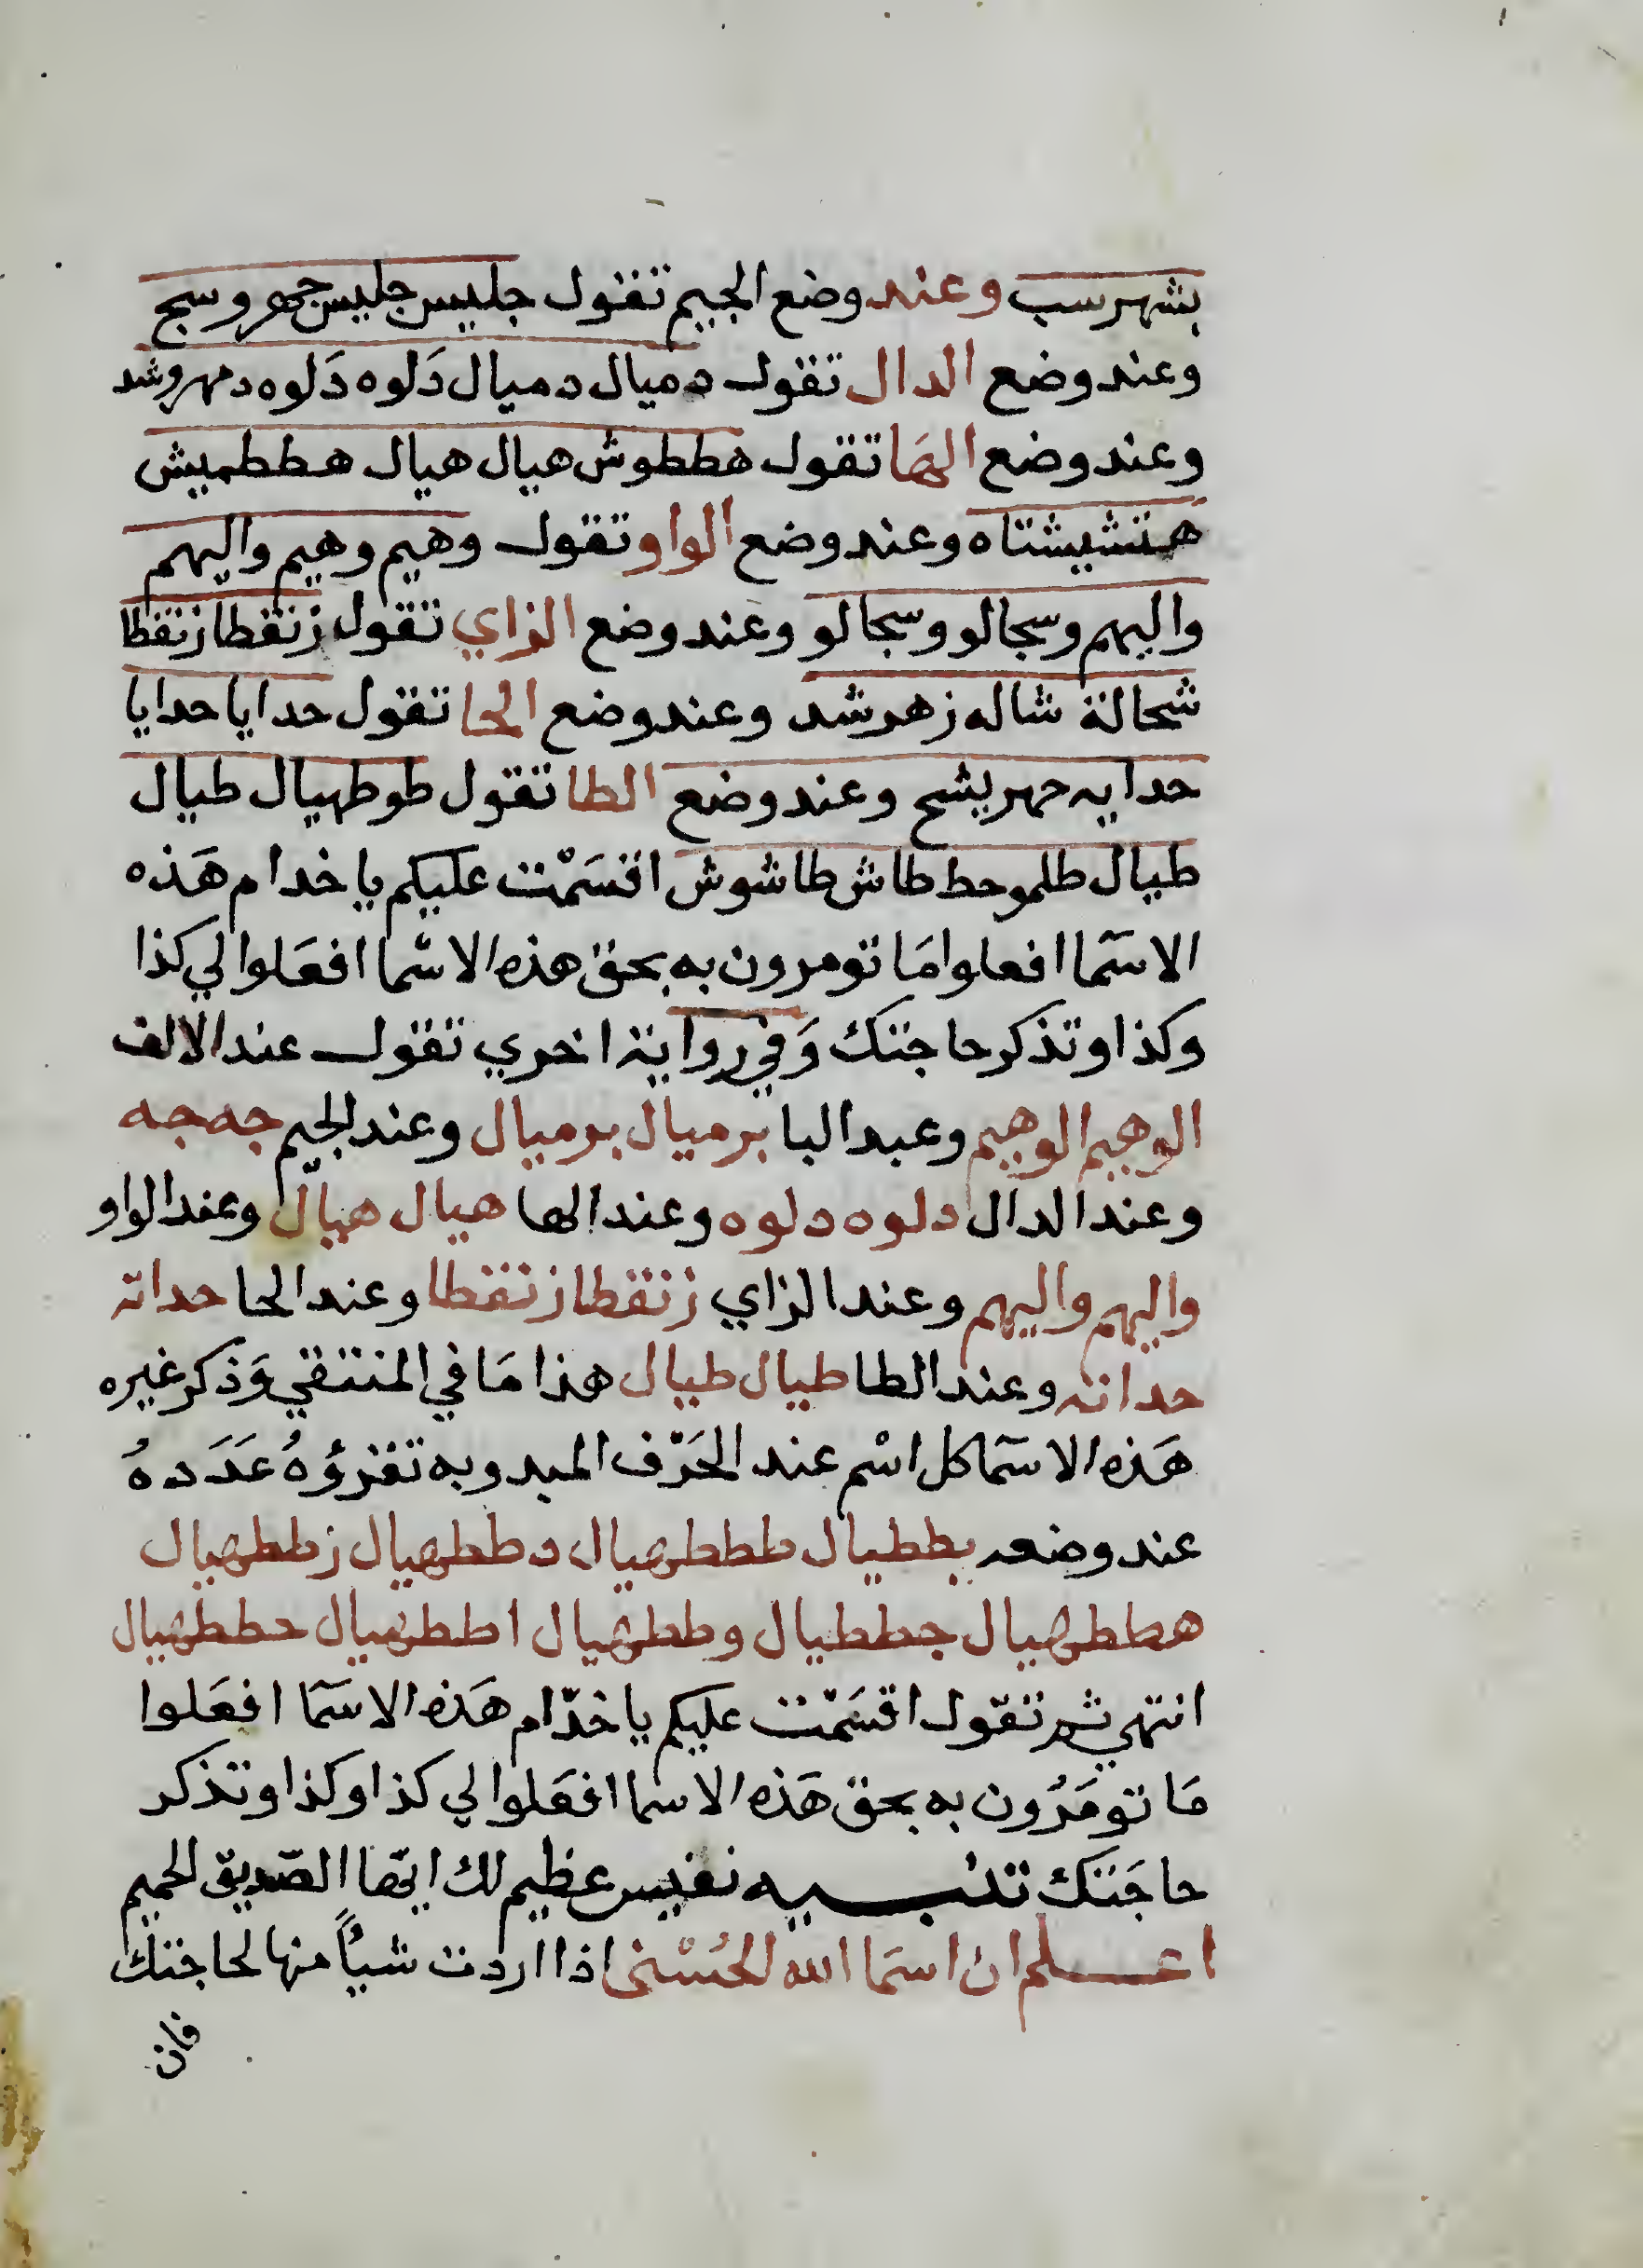 بشهرسب وعند وضع الجيم تقول جليس جليس جهروسبج
وعند وضع الدال تقول دميال دميال دَلوه دَلوه دمهروشد
وعند وضع الهَا تقول هططوش هيال هيال هططميش
هتشيشتاه وعند وضع الواو تقول وهيم وهيم واليهم
واليهم وسجالو وسجالو وعند وضع الزاي تقول زنقطا زنقطا
شحالة شاله زهرشد وعند وضع الحا تقول حدايا حدايا
حدايه حمهريشح وعند وضع الطا تقول طوطهيال طيال
طيال طلموحط طاش طاشوش اقسَمْت عليكم يا خدام هَذه
الاسمآ افعلوا مَا تومرون به بحق هذه الاسمآ افعَلوا لي كذا
وكذا وتذكر حاجتك وَفي رواية اخري تقول عند الالف
الوهيم الوهيم وعبد البا برميال برميال وعند الجيم جه جه
وعند الدال دلوه دلوه وعند الها هيال هيال وعند الواو
واليهم واليهم وعند الزاي زنقطا زنقطا وعند الحا حداته
حداته وعند الطا طيال طيال هذا مَا في المنتقي وَذكر غيره
هَذه الاسمآ كل اسْم عند الحَرْف المبدو به تقرؤهُ عَدَدهُ
عند وضعه بططيال طططهيال دططهيال زططهيال
هططهيال جططيال وططهيال اططهيال حططهيال
انتهي ثم تقول اقسَمْت عليكم يا خدّام هَذه الاسمَآ افعَلوا
مَا تومَرُون به بحق هَذه الاسما افعَلوا لي كذا وكذا وتذكر
حاجَتك تنبيه نفيس عظيم لك ايّها الصّديق الحميم
اعلم ان اسمَا الله الحُسْنى اذا اردت شيأً منها لحاجتك
فان